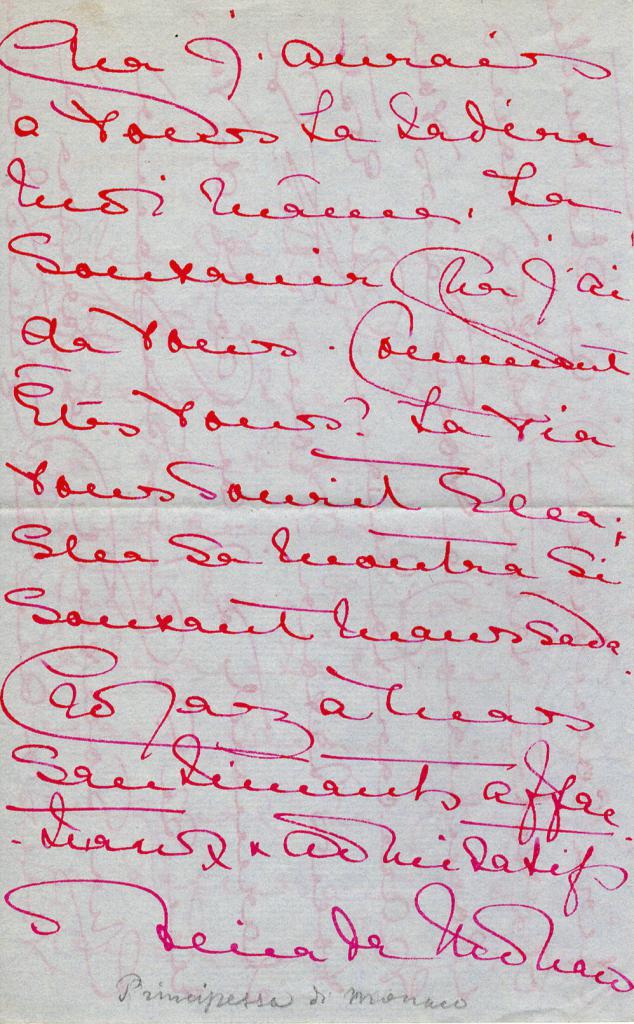 Que j'aurais
a vous le redire
moi même. Le
Souvenir que j'ai
de vous. Comment
Êtes vous? La vie
vous sourit Elle;
Elle se montre si
souvent maussade.
Croyez à mes
sentiments affec
-tueux & admiratifs
de Monaco
Principessa di Monaco